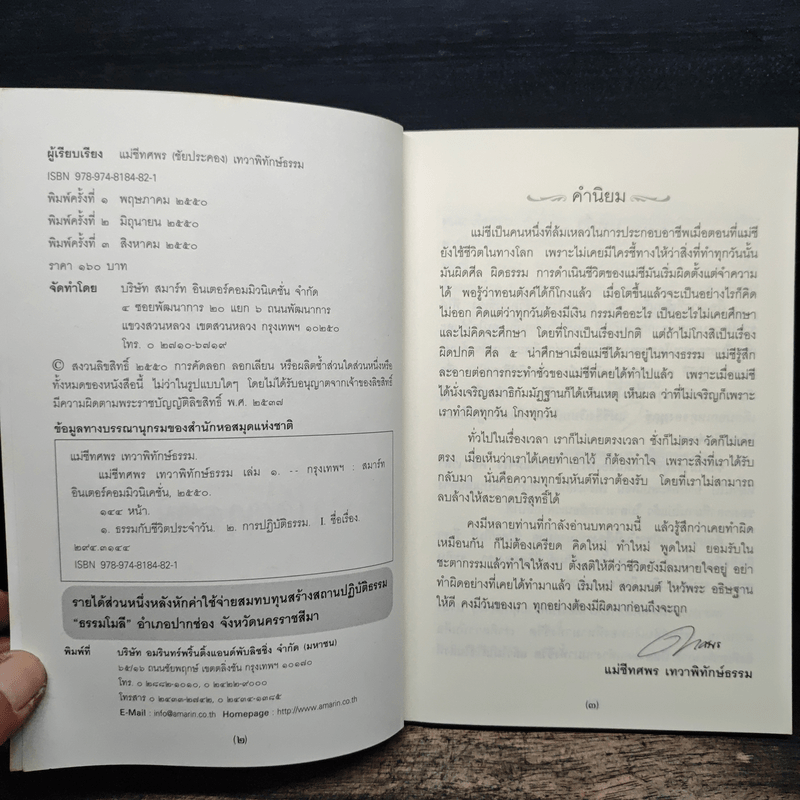 ผู้เรียบเรียง แม่ชีทศพร (ชัยประคอง) เทวาพิทักษ์ธรรม
ISBN 978-974-8184-82-1
พิมพ์ครั้งที่ ๑ พฤษภาคม ๒๕๕๐
พิมพ์ครั้งที่ ๒ มิถุนายน ๒๕๕๐
พิมพ์ครั้งที่ ๓ สิงหาคม ๒๕๕๐
ราคา ๑๖๐ บาท
จัดทำโดย บริษัท สมาร์ท อินเตอร์คอมมิวนิเคชั่น จำกัด
๔ ซอยพัฒนาการ ๒๐ แยก ๖ ถนนพัฒนาการ
แขวงสวนหลวง เขตสวนหลวง กรุงเทพฯ ๑๐๒๕๐
โทร. ๐ ๒๗๑๐-๖๗๑๙
© สงวนลิขสิทธิ์ ๒๕๕๐ การคัดลอก ลอกเลียน หรือผลิตซ้ำส่วนใดส่วนหนึ่งหรือ
ทั้งหมดของหนังสือนี้ ไม่ว่าในรูปแบบใดๆ โดยไม่ได้รับอนุญาตจากเจ้าของลิขสิทธิ์
มีความผิดตามพระราชบัญญัติลิขสิทธิ์ พ.ศ. ๒๕๓๗
ข้อมูลทางบรรณานุกรมของสำนักหอสมุดแห่งชาติ
แม่ชีทศพร เทวาพิทักษ์ธรรม.
แม่ชีทศพร เทวาพิทักษ์ธรรม เล่ม ๑. -- กรุงเทพฯ : สมาร์ท
อินเตอร์คอมมิวนิเคชั่น, ๒๕๕๐.
๑๔๔ หน้า.
๑. ธรรมกับชีวิตประจำวัน. ๒. การปฏิบัติธรรม. I. ชื่อเรื่อง.
๒๙๔.๓๑๔๔
ISBN 978-974-8184-82-1
รายได้ส่วนหนึ่งหลังหักค่าใช้จ่ายสมทบทุนสร้างสถานปฏิบัติธรรม
“ธรรมโมลี” อำเภอปากช่อง จังหวัดนครราชสีมา
พิมพ์ที่ บริษัท อมรินทร์พริ้นติ้งแอนด์พับลิชชิ่ง จำกัด (มหาชน)
๖๕/๑๖ ถนนชัยพฤกษ์ เขตตลิ่งชัน กรุงเทพฯ ๑๐๑๗๐
โทร. ๐ ๒๘๘๒-๑๐๑๐, ๐ ๒๔๒๒-๙๐๐๐
โทรสาร ๐ ๒๔๓๓-๒๗๔๒, ๐ ๒๔๓๔-๑๓๘๕
E-Mail : info@amarin.co.th Homepage : http://www.amarin.co.th
(๒)
คำนิยม
แม่ชีเป็นคนหนึ่งที่ล้มเหลวในการประกอบอาชีพเมื่อตอนที่แม่ชี
ยังใช้ชีวิตในทางโลก เพราะไม่เคยมีใครชี้ทางให้ว่าสิ่งที่ทำทุกวันนั้น
มันผิดศีล ผิดธรรม การดำเนินชีวิตของแม่ชีมันเริ่มผิดตั้งแต่จำความ
ได้ พอรู้ว่าทอนตังค์ได้ก็โกงแล้ว เมื่อโตขึ้นแล้วจะเป็นอย่างไรก็คิด
ไม่ออก คิดแต่ว่าทุกวันต้องมีเงิน กรรมคืออะไร เป็นอะไรไม่เคยศึกษา
และไม่คิดจะศึกษา โดยที่โกงเป็นเรื่องปกติ แต่ถ้าไม่โกงสิเป็นเรื่อง
ผิดปกติ ศีล ๕ น่าศึกษาเมื่อแม่ชีได้มาอยู่ในทางธรรม แม่ชีรู้สึก
ละอายต่อการกระทำชั่วของแม่ชีที่เคยได้ทำไปแล้ว เพราะเมื่อแม่ชี
ได้นั่งเจริญสมาธิกัมมัฏฐานก็ได้เห็นเหตุ เห็นผล ว่าที่ไม่เจริญก็เพราะ
เราทำผิดทุกวัน โกงทุกวัน
ทั่วไปในเรื่องเวลา เราก็ไม่เคยตรงเวลา ชั่งก็ไม่ตรง วัดก็ไม่เคย
ตรง เมื่อเห็นว่าเราได้เคยทำเอาไว้ ก็ต้องทำใจ เพราะสิ่งที่เราได้รับ
กลับมา นั่นคือความทุกข์มหันต์ที่เราต้องรับ โดยที่เราไม่สามารถ
ลบล้างให้สะอาดบริสุทธิ์ได้
คงมีหลายท่านที่กำลังอ่านบทความนี้ แล้วรู้สึกว่าเคยทำผิด
เหมือนกัน ก็ไม่ต้องเครียด คิดใหม่ ทำใหม่ พูดใหม่ ยอมรับใน
ชะตากรรมแล้วทำใจให้สงบ ตั้งสติให้ดีว่าชีวิตยังมีลมหายใจอยู่ อย่า
ทำผิดอย่างที่เคยได้ทำมาแล้ว เริ่มใหม่ สวดมนต์ ไหว้พระ อธิษฐาน
ให้ดี คงมีวันของเรา ทุกอย่างต้องมีผิดมาก่อนถึงจะถูก
ทศพร
แม่ชีทศพร เทวาพิทักษ์ธรรม
(๓)